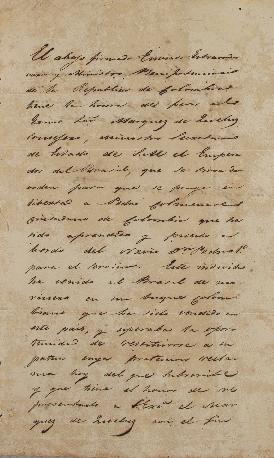 El abajo firmado Enviado Extraordi
nario y Ministro Plenipotenciario
de la Republica de Colombia
tiene la honra de
Exmo Señor Marquez de Queluz
Consejero, Ministro Secretario
de Estado de S.M. el Empera
dor del Brasil, que se sirva
orden para que se ponga en
libertad a Pedro
Ciudadano de Colombia que ha
sido aprendido y puesto a
bordo del navio Dn Pedro 1º
para el servicio. Este individuo
ha venido al Brasil de
en un buque Colom
biano que ha sido vendido en
este pais, y esperaba la opor
tunidad de restituirse a su
patria cuya proteccion recla
ma hoy del que subscribe
y que tiene el honor de
a Exmo el Mar
quez de Queluz con el fin